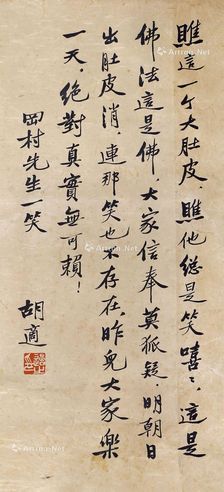 瞧這一个大肚皮，瞧他總是笑嘻〻，這是
佛法這是佛，大家信奉莫狐疑，明朝日
出肚皮消，連那笑也不存在，昨兒大家樂
一天，絕對真實無可賴！
岡村先生一笑
胡適